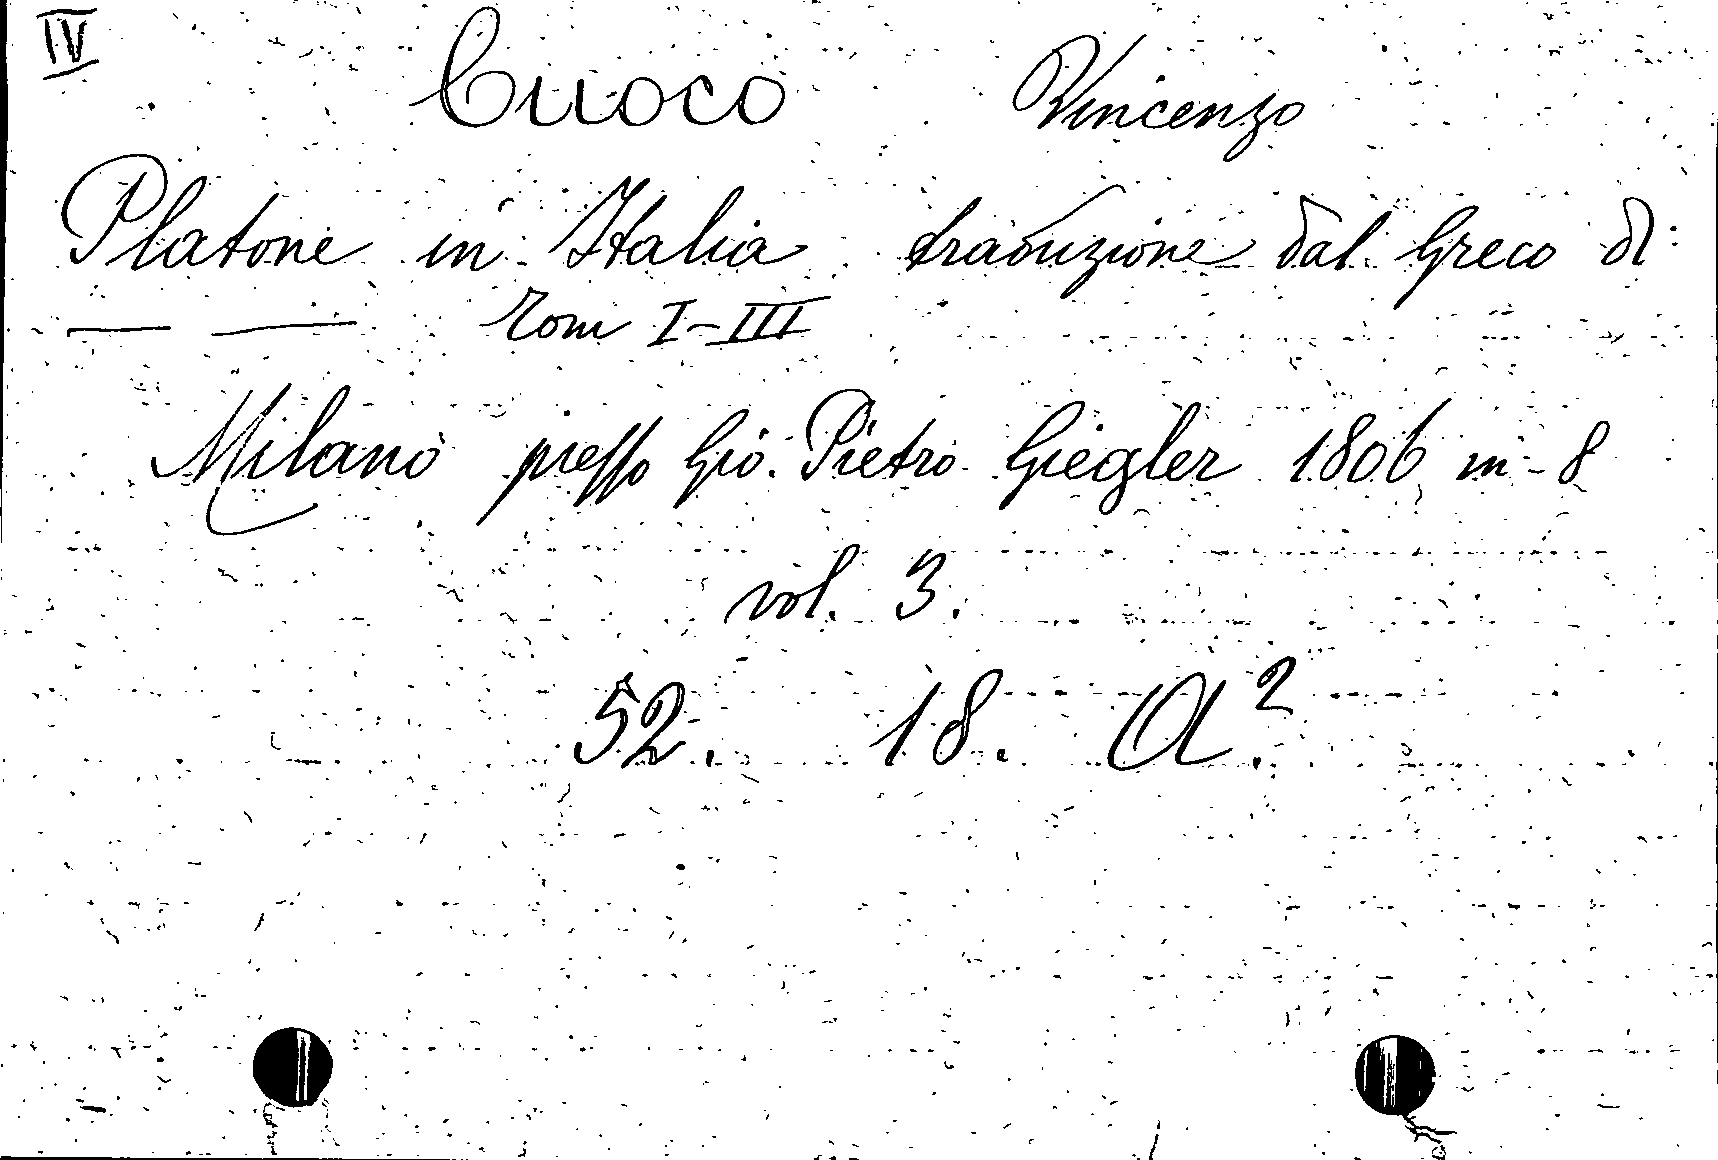 IV
Cuoco Vincenzo
Platone in Italia traduzione dal Greco di:
— — Tomi I-III
Milano presso Gio. Pietro Giegler 1806 in-8
vol. 3.
52. 18. A².